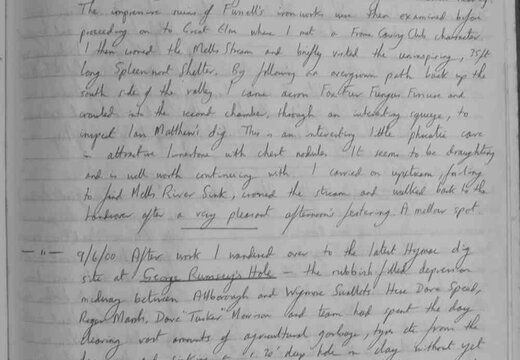 The impressive ruins of Fussell's ironworks were then examined before
proceeding on to Great Elm where I met a Frome Caving Club character.
I then crossed the Mells Stream and briefly visited the uninspiring, 75ft
long Spleenwort Shelter. By following an overgrown path back up the
south side of the valley I came across Fox Tuer Fungus Fissure and
crawled into the second chamber, through an interesting squeeze, to
inspect Ian Matthew's dig. This is an interesting little phreatic cave
in attractive limestone with chert nodules. It seems to be draughting
and is well worth continuing with. I carried on upstream, failing
to find Mells River Sink, crossed the stream and walked back to the
Landrover after a very pleasant afternoon's ferreting. A mellow spot.
— " — 9/6/00 After work I wandered over to the latest Hymac dig
site at George Rumsey's Hole — the rubbish filled depression
midway between Attborough and Wigmore Swallets. Here Dave Speed,
Roger Marsh, Dave "Tusker" Morrison and team had spent the day
clearing vast amounts of agricultural garbage, tyres etc from the
20' deep hole in clay without yet